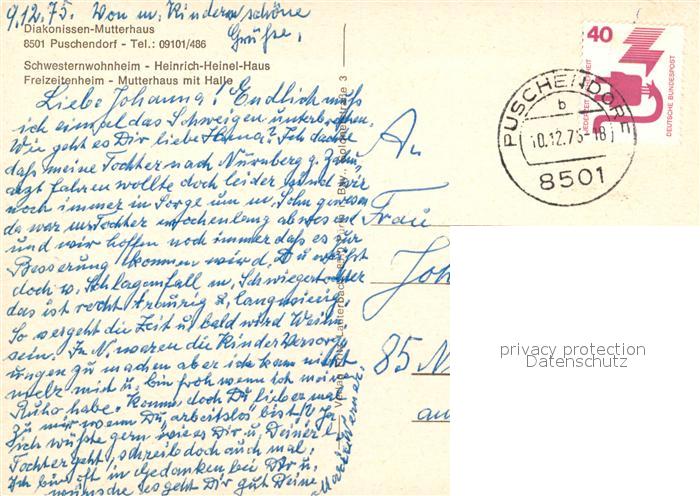 9.12.75. Von m. Kindern schöne
Grüße,
Diakonissen-Mutterhaus
8501 Puschendorf - Tel.: 09101/486
Schwesternwohnheim - Heinrich-Heinel-Haus
Freizeitenheim - Mutterhaus mit Halle
Liebe Johanna! Endlich muß
ich einmal das Schweigen unterbrechen.
Wie geht es Dir liebe Hanna? Ich dachte
daß meine Tochter nach Nürnberg z. Zahn
arzt fahren wollte doch leider sind wir
noch immer in Sorge um m. Sohn gewesen
da war m. Tochter wochenlang abwesend
und wir hoffen noch immer daß es zur
Besserung kommen wird. Du weißt
doch v. Schlaganfall m. Schwiegertochter
das ist recht traurig u. langwierig.
So vergeht die Zeit u. bald wird Weihn
sein. In N. waren die Kinder Besorg
ungen zu machen aber ich kann nicht
mehr mit u. bin froh wenn ich meine
Ruhe habe. Komm doch Du lieber mal
zu mir wenn Du "arbeitslos" bist
Ich wüßte gern wie es Dir u. Deiner l.
Tochter geht, schreib doch auch mal.
Ich bin oft in Gedanken bei Dir u.
wünsche es geht Dir gut Deine
Werner
An
Frau
Joh
85 N
am
40
JEDERZEIT SICHERHEIT
DEUTSCHE BUNDESPOST
PUSCHENDORF
b
10.12.75-18
8501
privacy protection
Datenschutz